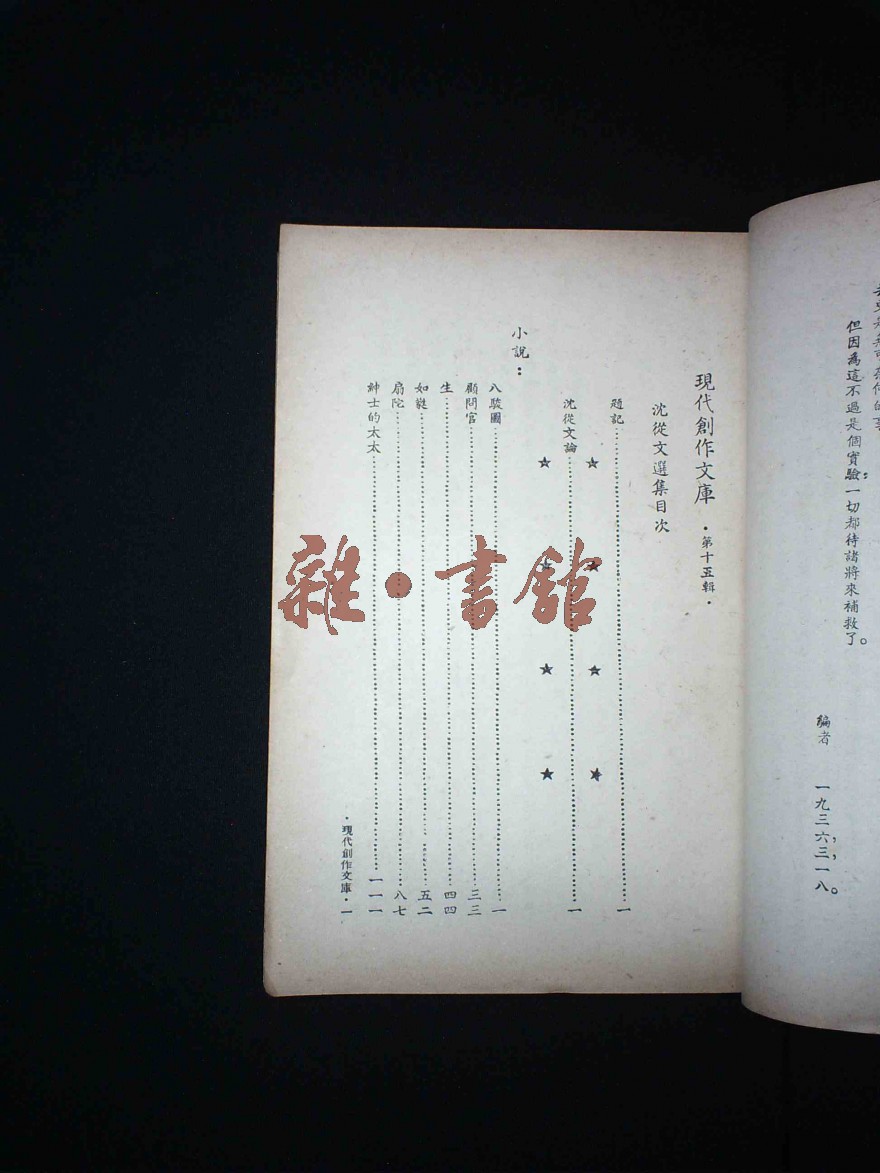 但因為這不過是個實驗：一切都待諸將來補救了。
編者 一九三六，三，一八。
現代創作文庫 ·第十五輯·
沈從文選集目次
題記……一
沈從文論……一
小說：
八駿圖……一
顧問官……三三
生……四四
如蕤……五二
扇陀……八七
紳士的太太……一一一
·現代創作文庫· 一
雜·書館